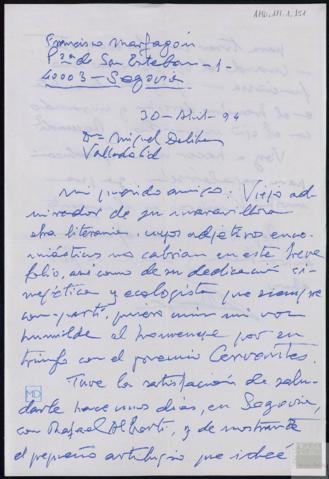 AMD, 111, 1, 151
Francisco Marfagón
Pza de San Esteban - 1 -
40003 - Segovia
30 - Abril - 94
Dn Miguel Delibes
Valladolid
Mi querido amigo: Viejo ad-
mirador de su maravillosa
obra literaria, cuyos adjetivos enco-
miásticos no cabrían en este breve
folio, así como de su dedicación ci-
negética y ecologista que siempre
compartí, quiero unir mi voz
humilde al homenaje por su
triunfo con el premio Cervantes.
Tuve la satisfacción de salu-
darle hace unos días, en Segovia,
con Rafael Alberti, y de mostrarle
el pequeño artilugio que ideé
MD